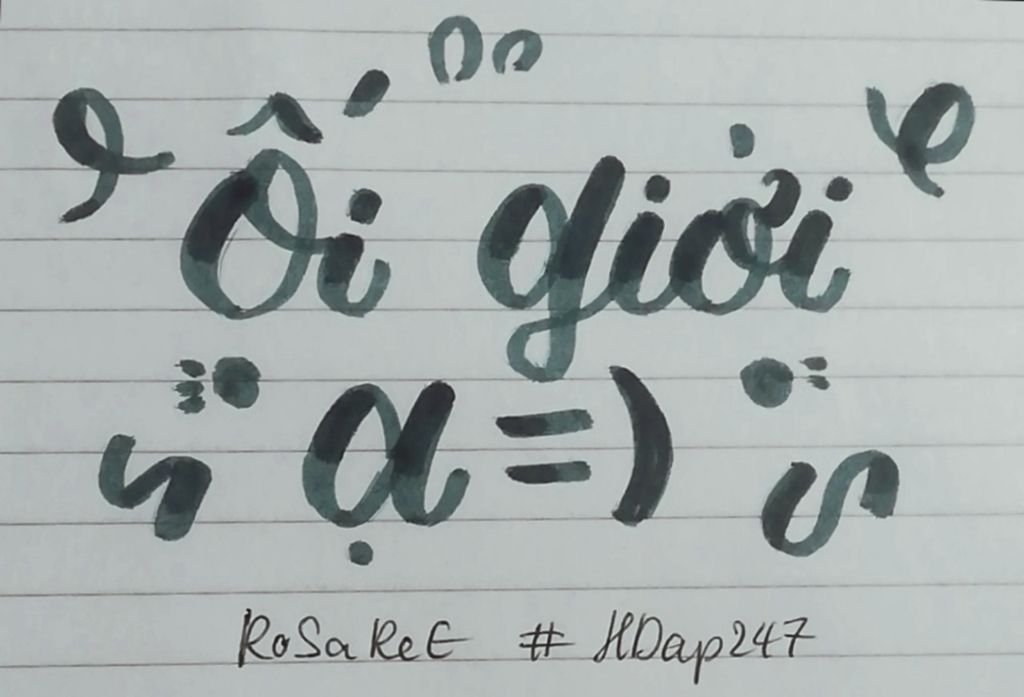 Ối giởi
ạ =)
RoSaReE # HDap247